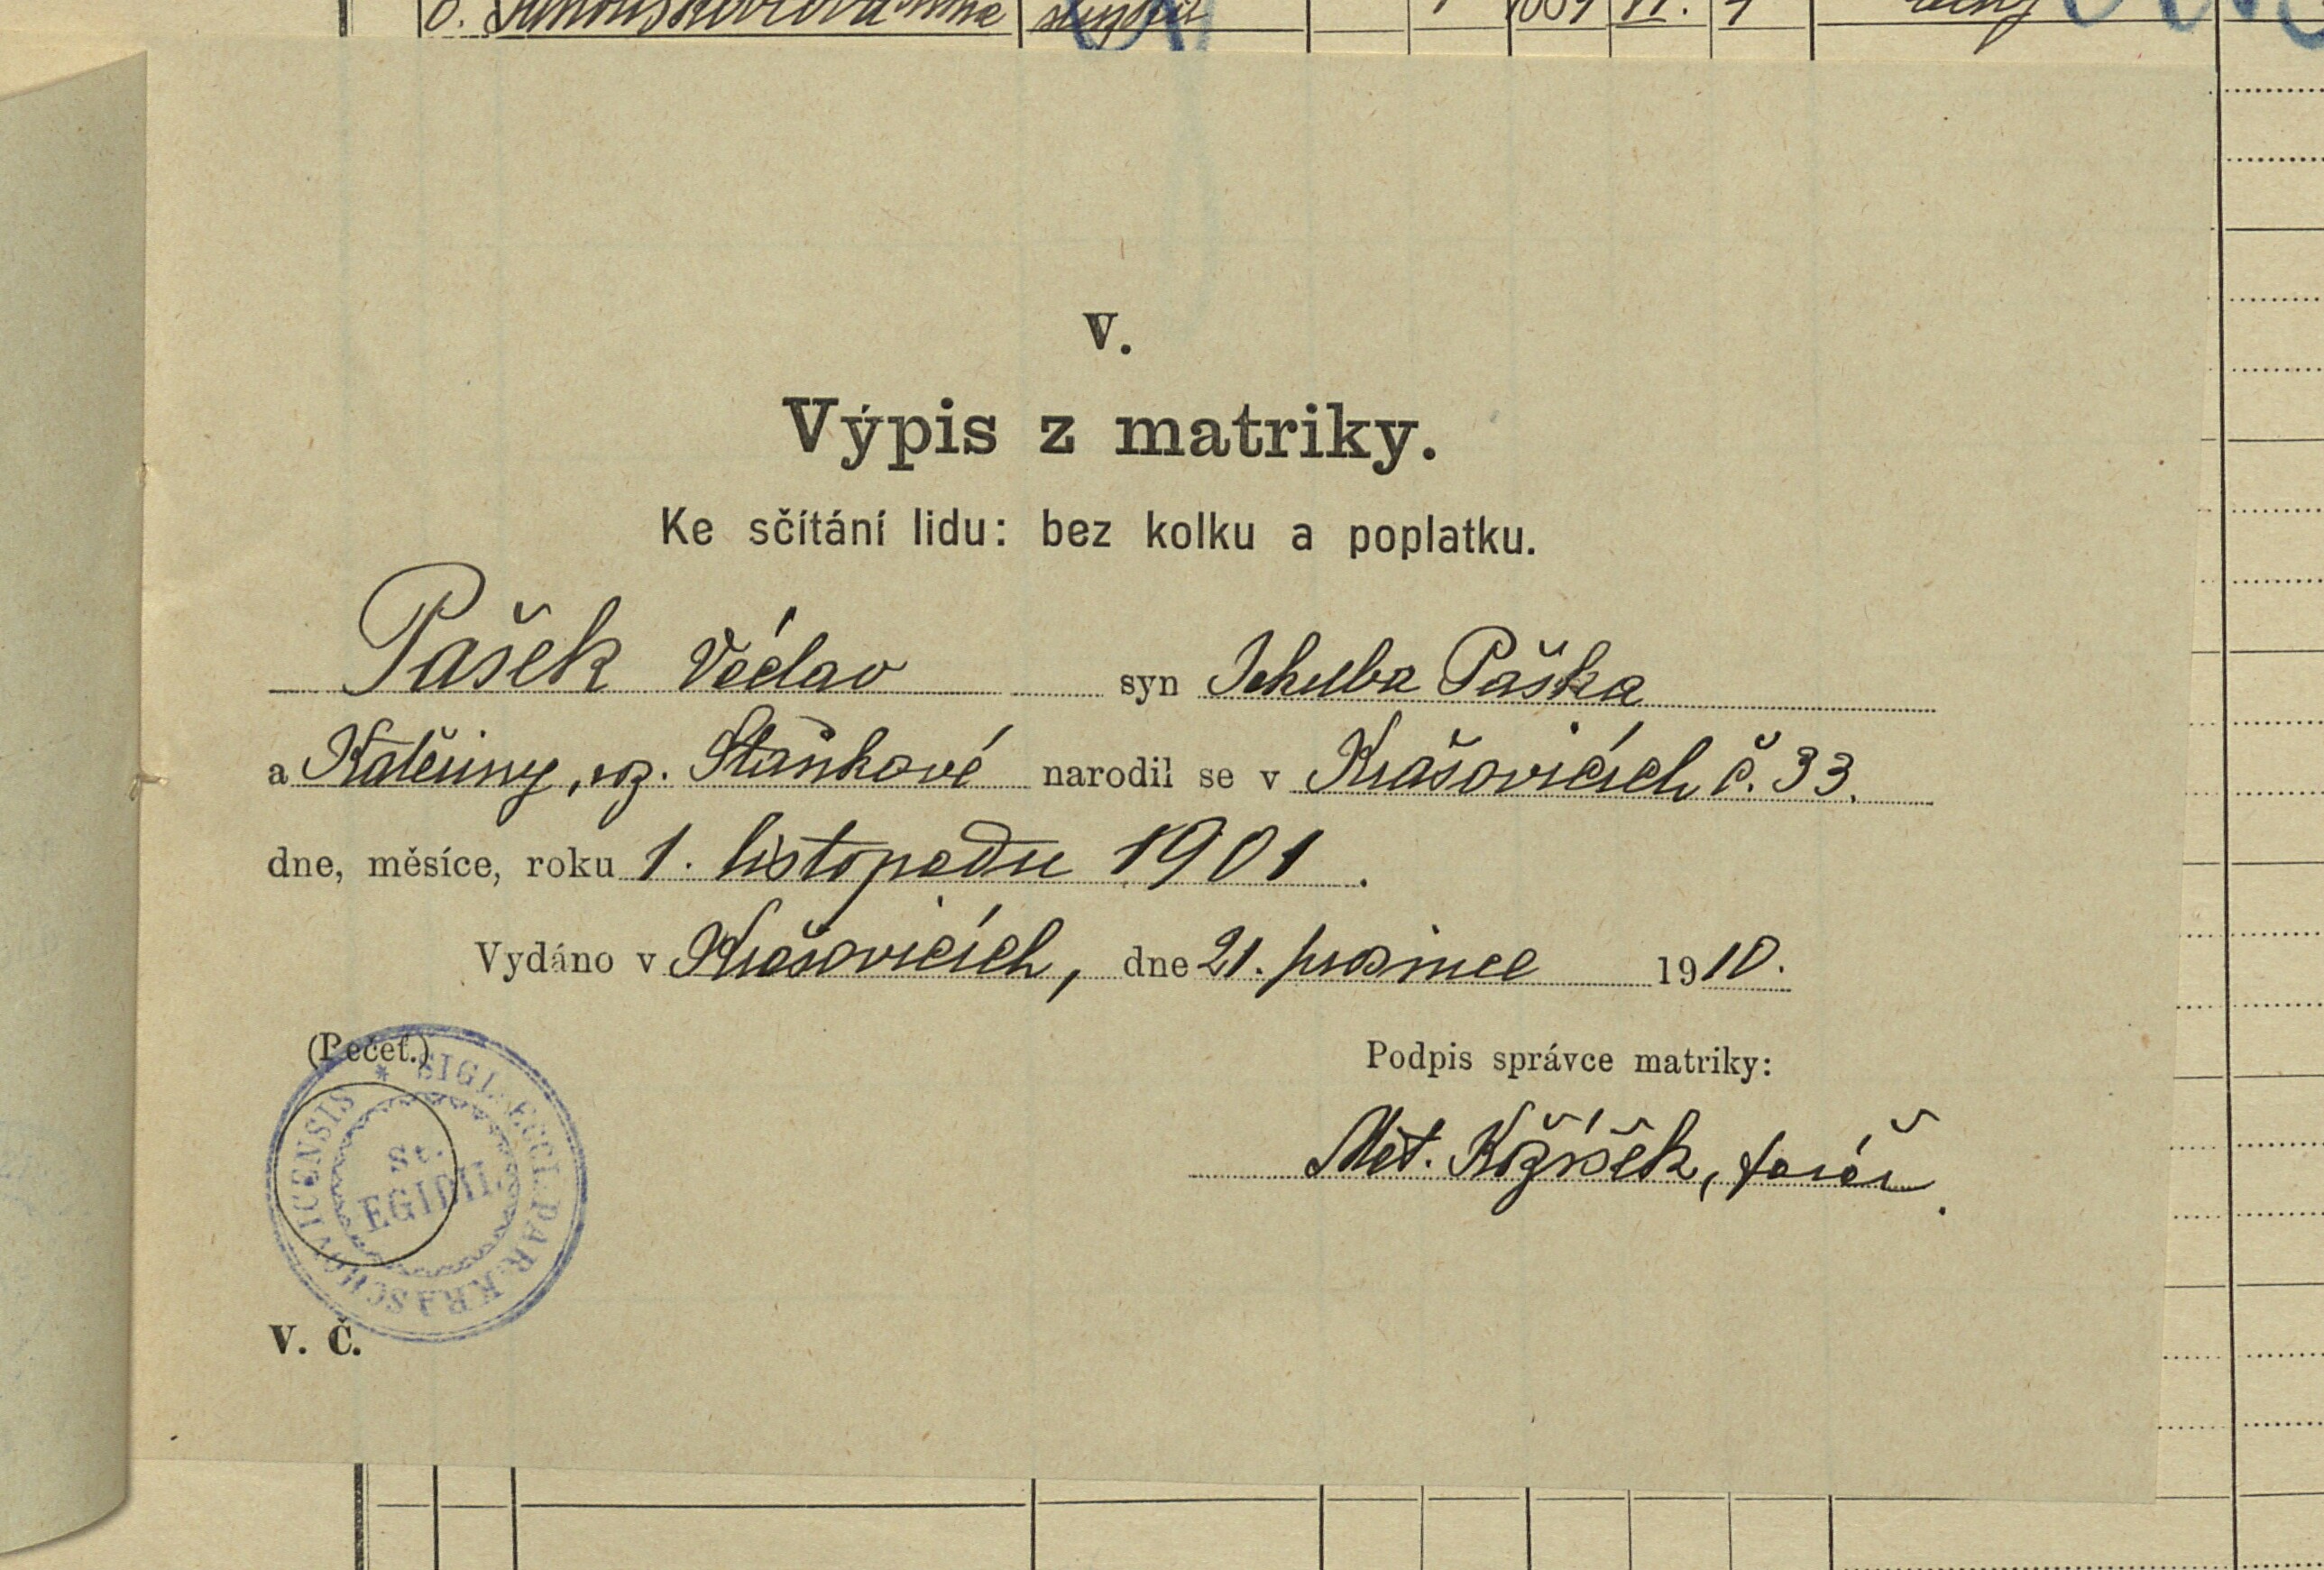 V.
Výpis z matriky.
Ke sčítání lidu: bez kolku a poplatku.
Pašek Václav syn Jakuba Paška
a Kateřiny, roz. Staňkové narodil se v Krašovicích č. 33.
dne, měsíce, roku 1. listopadu 1901.
Vydáno v Krašovicích, dne 21. prosince 1910.
(Pečeť.)
Podpis správce matriky:
Met. Kožíšek, farář.
* SIGI. ECCL. PAR. KRASCHOVICENSIS
St.
EGIDII.
V. Č.